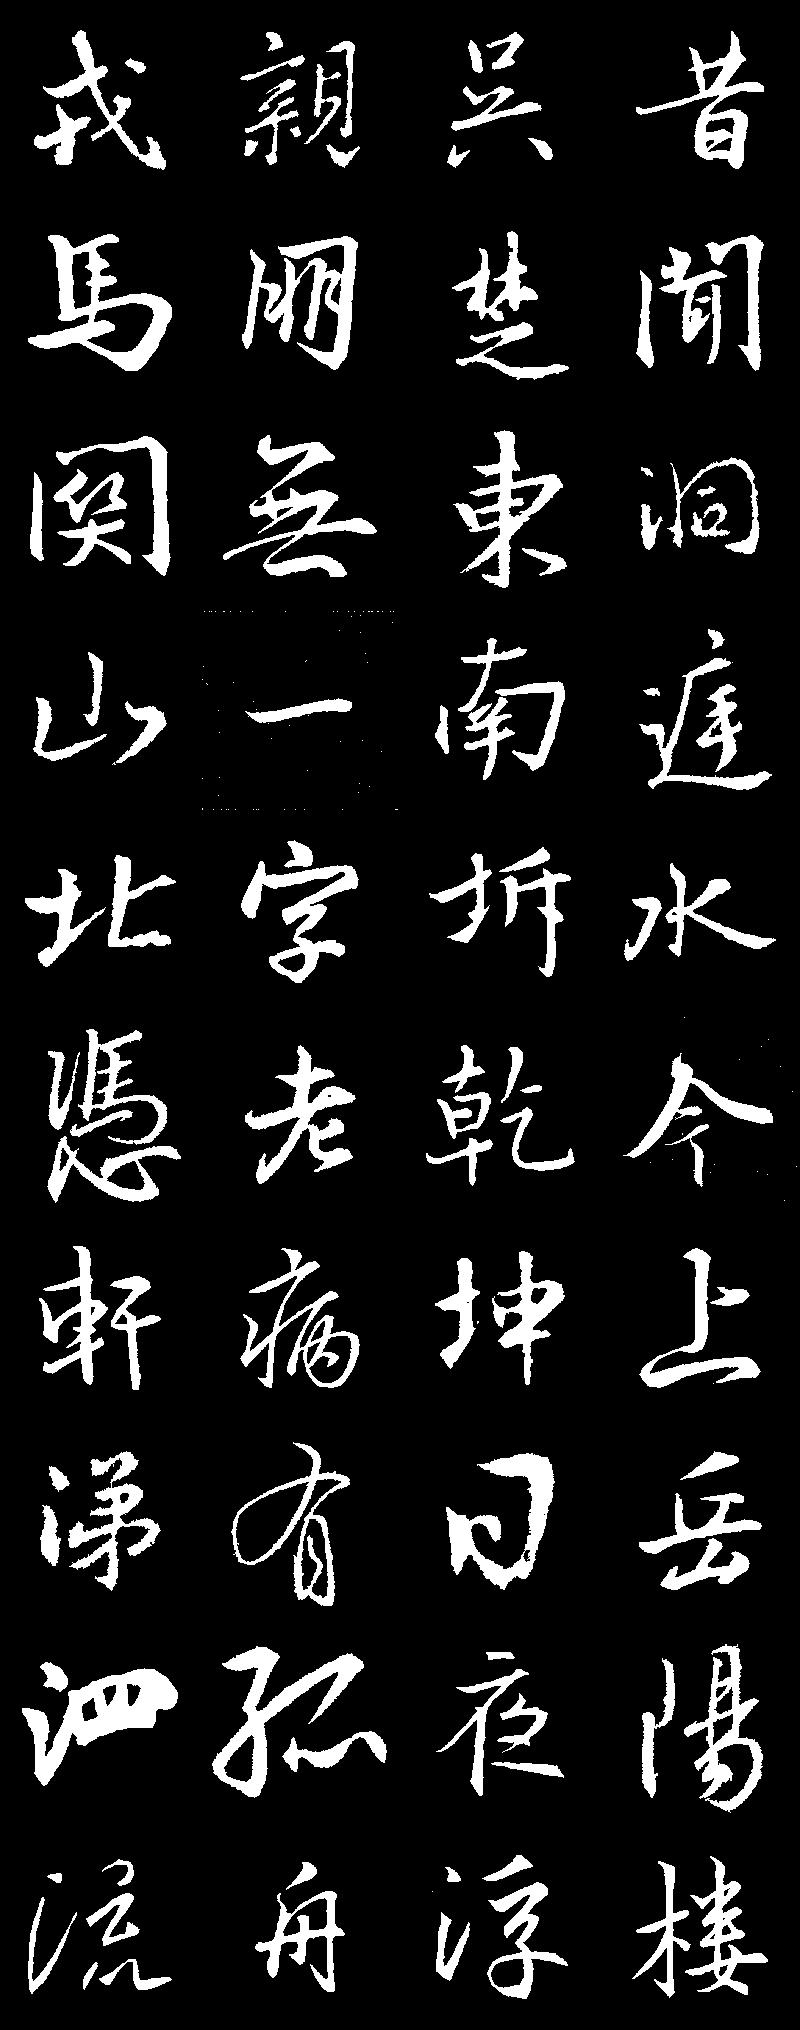 昔聞洞庭水今上岳陽樓
吳楚東南坼乾坤日夜浮
親朋無一字老病有孤舟
戎馬關山北憑軒涕泗流